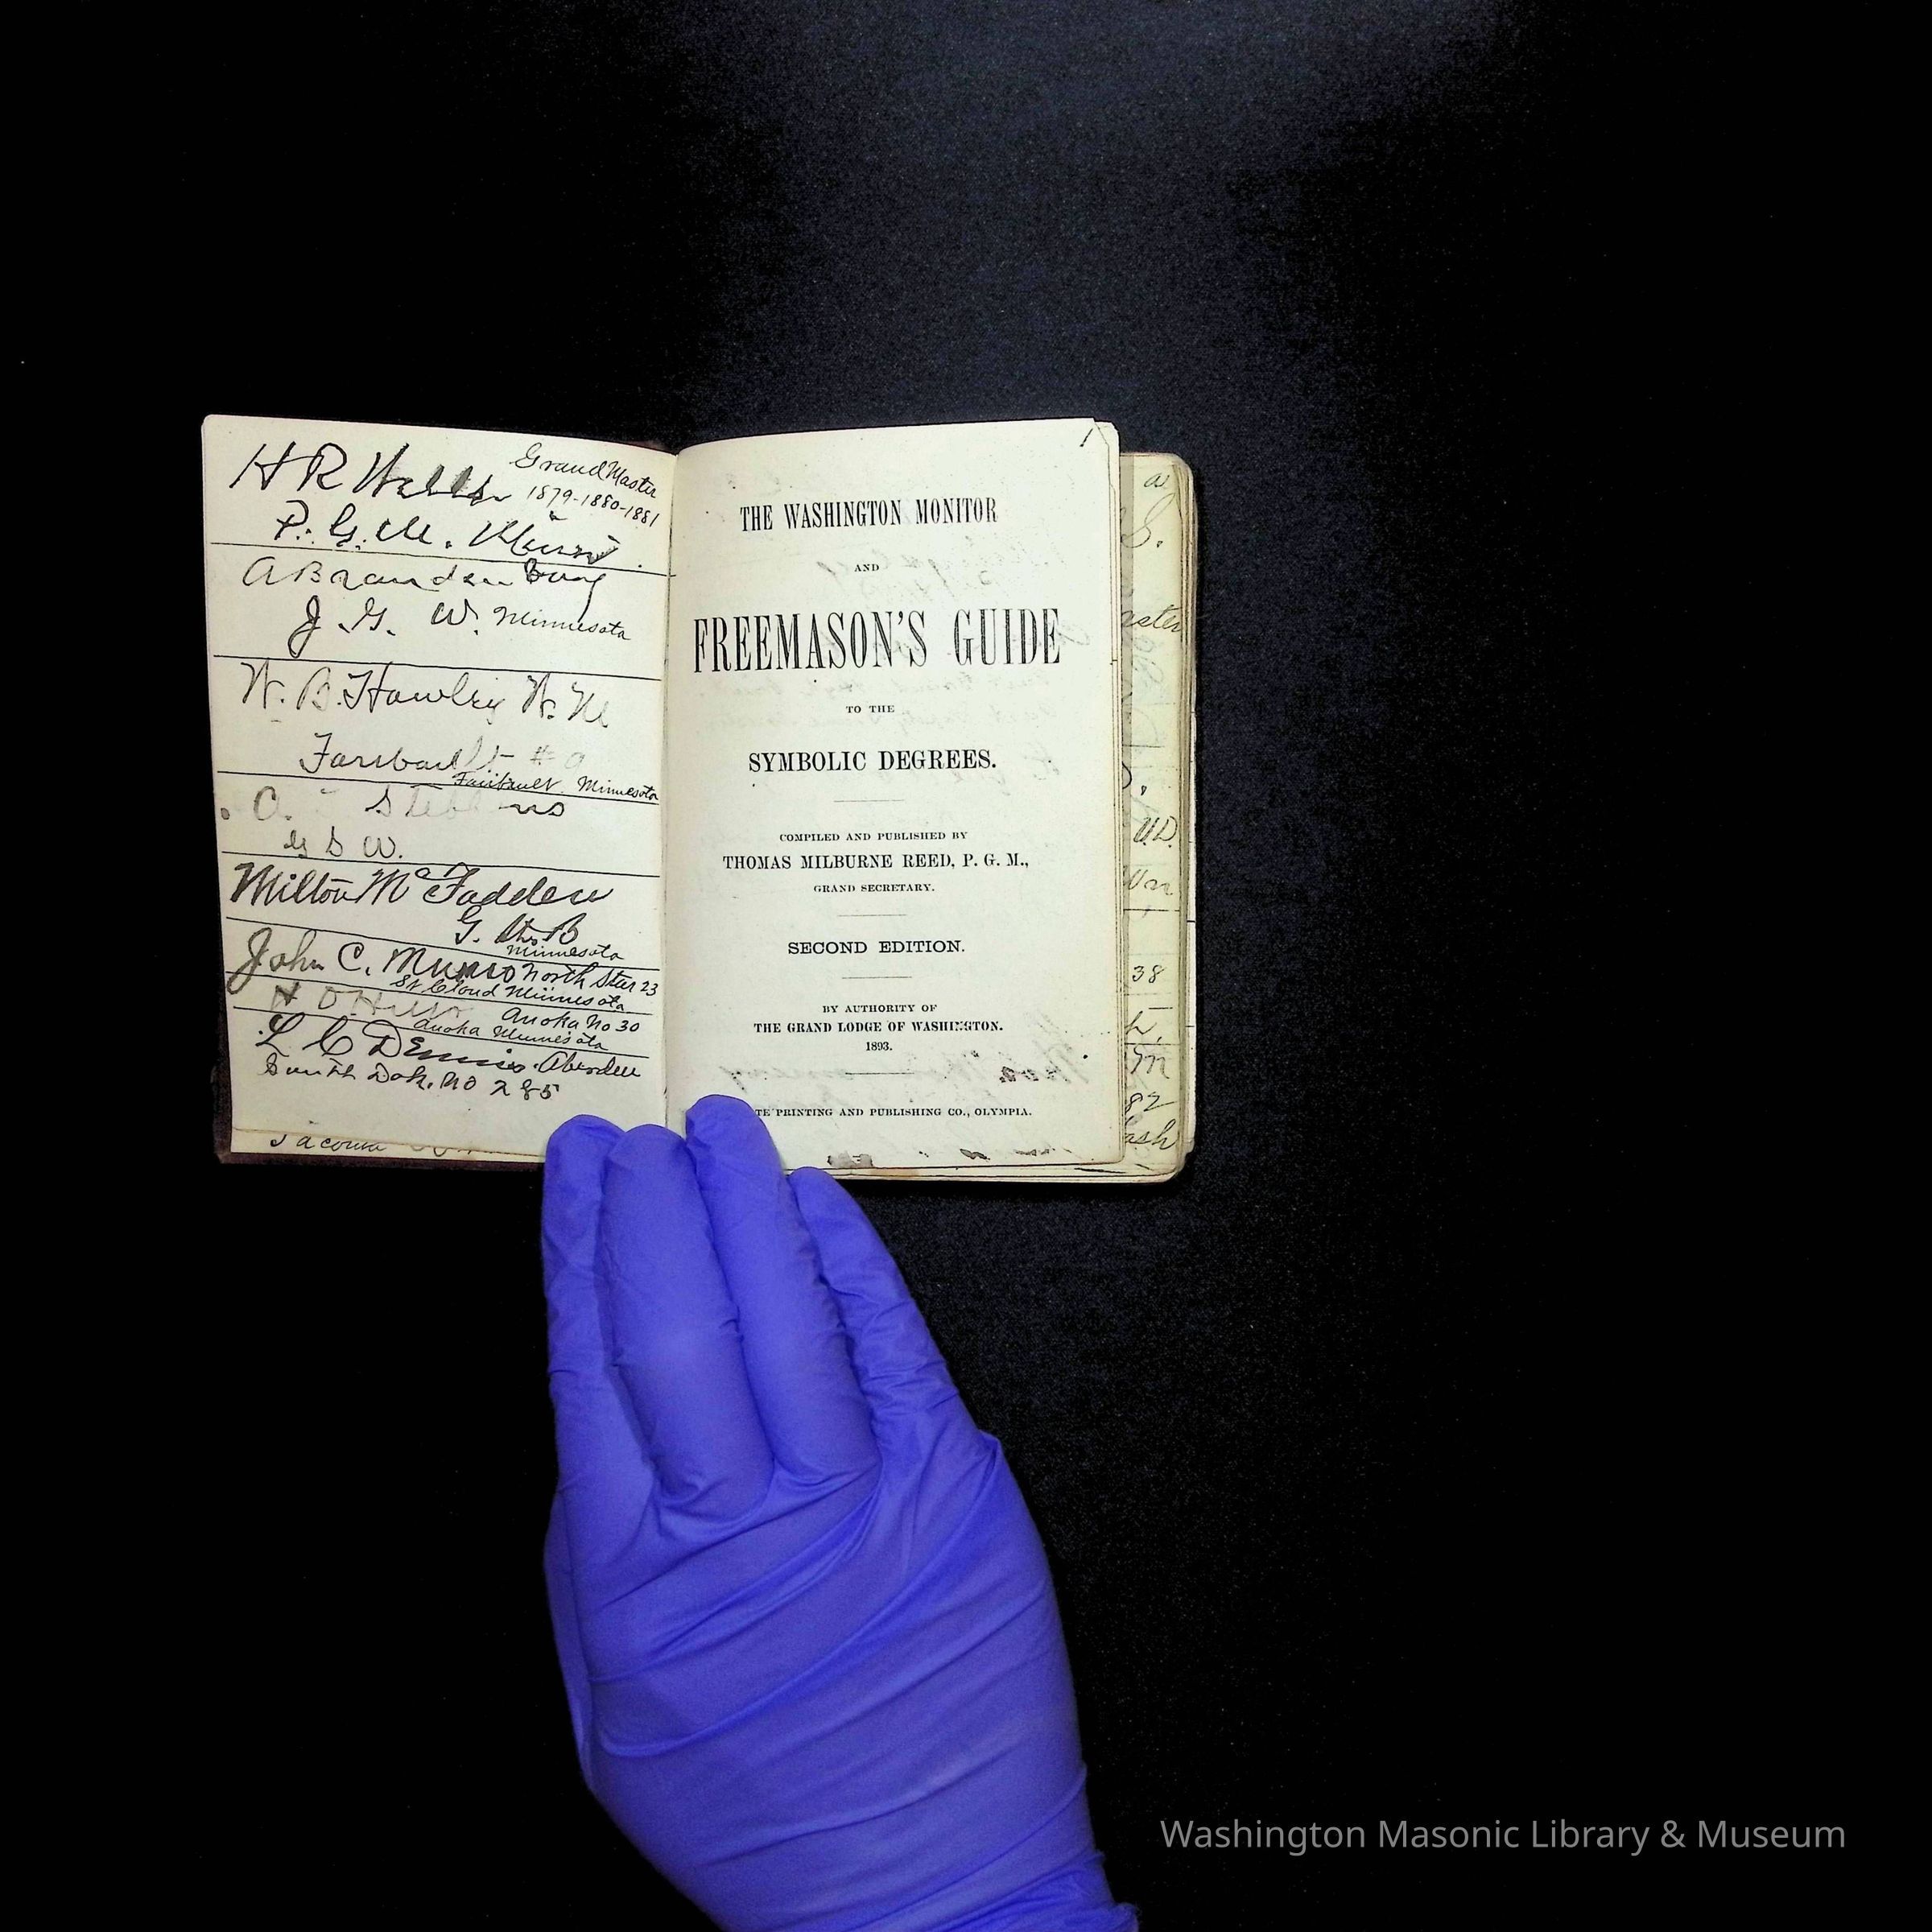 H R Wells Grand Master
1879-1880-1881
P. G. M. Minn.
A Brandenburg
J. G. W. Minnesota
W. B. Hawley W. M
Faribault # 9
Faribault Minnesota
C.
G S W.
Milton McFadden
G. B
Minnesota
John C. Munro North Star 23
St Cloud Minnesota
Anoka No 30
Anoka Minnesota
L C Dennis. Aberdeen
South Dak. No 285
Tacoma
1
THE WASHINGTON MONITOR
AND
FREEMASON'S GUIDE
TO THE
SYMBOLIC DEGREES.
COMPILED AND PUBLISHED BY
THOMAS MILBURNE REED, P. G. M.,
GRAND SECRETARY.
SECOND EDITION.
BY AUTHORITY OF
THE GRAND LODGE OF WASHINGTON.
1893.
TE PRINTING AND PUBLISHING CO., OLYMPIA.
S.
aster
U.D.
38
82
ash
Washington Masonic Library & Museum